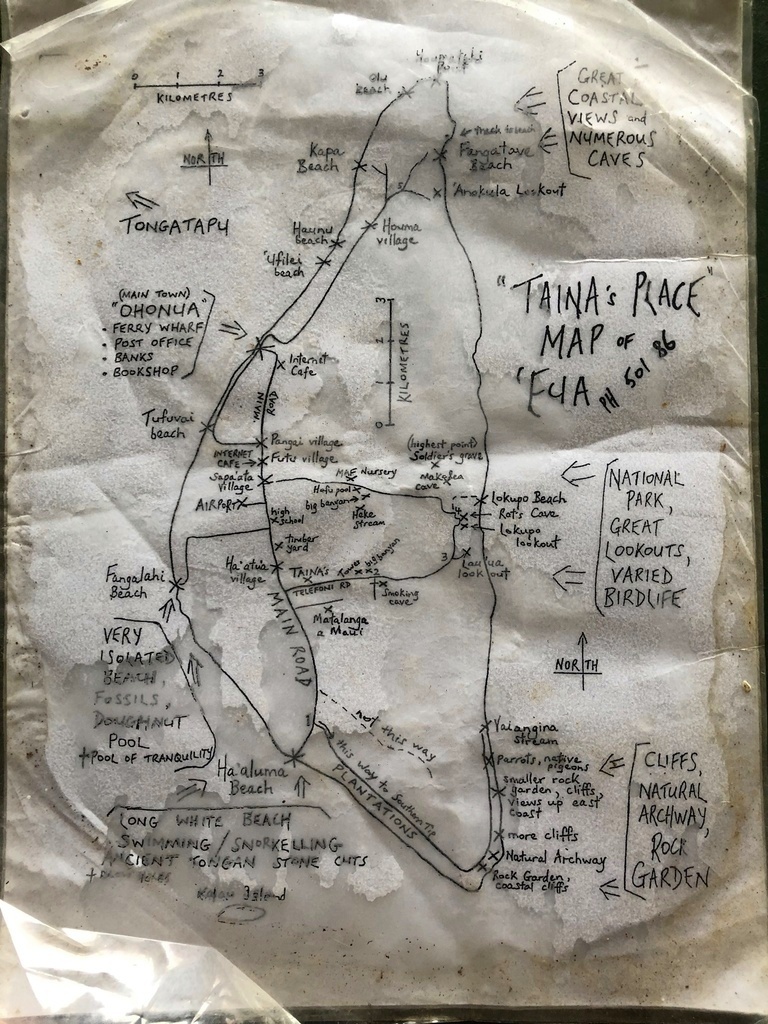 Point
Beach
0 1 2 3
KILOMETRES
NORTH
TONGATAPU
GREAT
COASTAL
VIEWS and
NUMEROUS
CAVES
← Track to beach
Fangatave
Beach
Kapa
Beach
5
Anokula Lookout
Haunu
beach
Houma
village
'Ufilei
beach
(MAIN TOWN)
"OHONUA"
• FERRY WHARF
• POST OFFICE
• BANKS
• BOOKSHOP
3
2
1
0
KILOMETRES
"TAINA'S PLACE"
MAP OF
'EUA
PH 501 86
Internet
Cafe
MAIN ROAD
Tufuvai
beach
Pangai village
INTERNET
CAFE
Futu village
Sapa'ata
Village
MAF Nursery
(highest point)
Soldier's grave
Makolea
cave
AIRPORT
Hafu pool
big banyan
Heke
Stream
high
school
timber
yard
4
Lokupo Beach
Rat's Cave
Lokupo
lookout
NATIONAL
PARK,
GREAT
LOOKOUTS,
VARIED
BIRDLIFE
Ha'atua
village
TAINA'S
Tower
big banyan
2
TELEFONI RD
Smoking
cave
3
Lau'ua
lookout
Matalanga
a Maui
Fangalahi
Beach
MAIN ROAD
NORTH
VERY
ISOLATED
BEACH,
FOSSILS,
DOUGHNUT
POOL
+ POOL OF TRANQUILITY
1
not this way
this way to Southern Tip
PLANTATIONS
Ha'aluma
Beach
Vaiangina
stream
parrots, native
pigeons
smaller rock
garden, cliffs,
views up east
coast
more cliffs
Natural Archway
Rock Garden,
coastal cliffs
CLIFFS,
NATURAL
ARCHWAY,
ROCK
GARDEN
LONG WHITE BEACH
SWIMMING / SNORKELLING
ANCIENT TONGAN STONE CUTS
Kalau Island